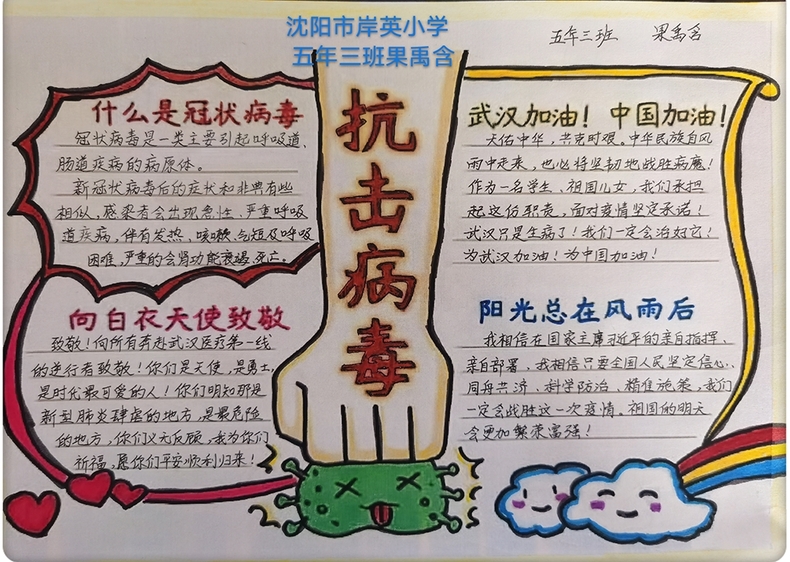 沈阳市岸英小学
五年三班果禹含
五年三班 果禹含
抗击病毒
什么是冠状病毒
冠状病毒是一类主要引起呼吸道、
肠道疾病的病原体。
新冠状病毒后的症状和非典有些
相似,感染者会出现急性、严重呼吸
道疾病,伴有发热、咳嗽、气短及呼吸
困难,严重的会肾功能衰竭、死亡。
武汉加油!中国加油!
天佑中华,共克时艰。中华民族自风
雨中走来,也必将坚韧地战胜病魔!
作为一名学生、祖国儿女,我们承担
起这份职责,面对疫情坚定承诺!
武汉只是生病了!我们一定会治好它!
为武汉加油!为中国加油!
向白衣天使致敬
致敬!向所有奔赴武汉医疗第一线
的逆行者致敬!你们是天使,是勇士,
是时代最可爱的人!你们明知那是
新型肺炎肆虐的地方,是最危险
的地方,你们义无反顾,我为你们
祈福,愿你们平安顺利归来!
阳光总在风雨后
我相信在国家主席习近平的亲自指挥、
亲自部署,我相信只要全国人民坚定信心、
同舟共济、科学防治、精准施策,我们
一定会战胜这一次疫情。祖国的明天
会更加繁荣富强!